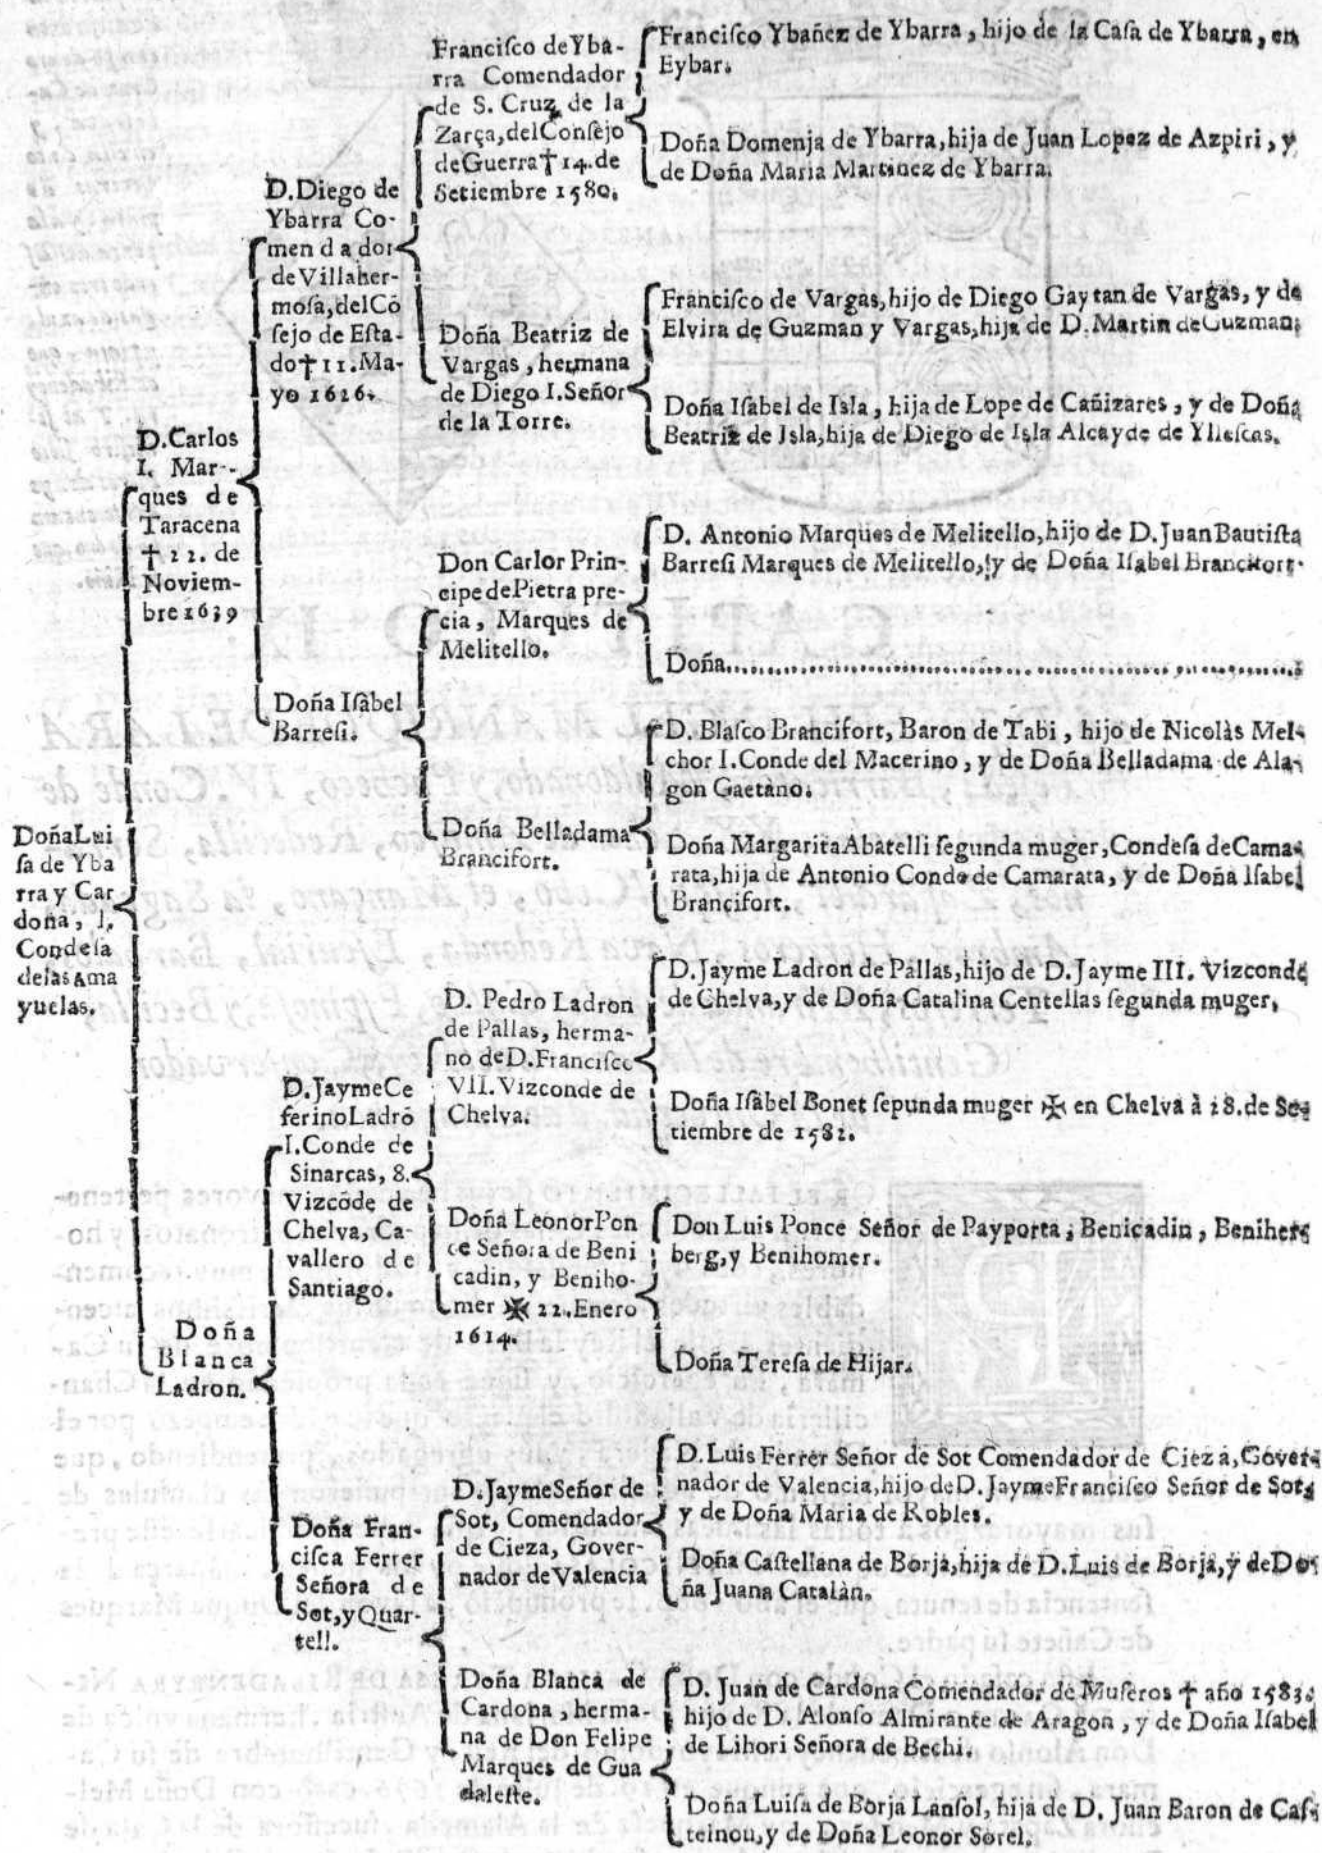 DoñaLui
ſa de Yba
rra y Car
dona, I.
Condeſa
delasAma
yuelas.
D.Carlos
I. Mar-
ques de
Taracena
† 22. de
Noviem-
bre 1639
Doña
Blanca
Ladron.
D.Diego de
Ybarra Co-
mendador
deVillaher-
moſa,delCõ
ſejo de Eſta-
do† 11.Ma-
yo 1626.
Doña Iſabel
Barreſi.
D.JaymeCe
ferinoLadrõ
I.Conde de
Sinarcas, 8.
Vizcõde de
Chelva, Ca-
vallero de
Santiago.
Doña Fran-
ciſca Ferrer
Señora de
Sot,yQuar-
tell.
Franciſco deYba-
rra Comendador
de S. Cruz de la
Zarça,delConſejo
deGuerra† 14.de
Setiembre 1580.
Doña Beatriz de
Vargas, hermana
de Diego I.Señor
de la Torre.
Don Carlor Prin-
cipe dePietra pre-
cia, Marques de
Melitello.
Doña Belladama
Brancifort.
D. Pedro Ladron
de Pallas, herma-
no deD.Franciſco
VII.Vizconde de
Chelva.
Doña LeonorPon
ce Señora de Beni
cadin, y Beniho-
mer ✠ 22.Enero
1614.
D.JaymeSeñor de
Sot, Comendador
de Cieza, Gover-
nador deValencia
Doña Blanca de
Cardona, herma-
na de Don Felipe
Marques de Gua
daleſte.
Franciſco Ybañez de Ybarra, hijo de la Caſa de Ybarra, en
Eybar.
Doña Domenja de Ybarra,hija de Juan Lopez de Azpiri, y
de Doña Maria Martinez de Ybarra.
Franciſco de Vargas,hijo de Diego Gaytan de Vargas, y de
Elvira de Guzman y Vargas,hija de D.Martin deGuzman.
Doña Iſabel de Isla, hija de Lope de Cañizares, y de Doña
Beatriz de Isla,hija de Diego de Isla Alcayde de Ylleſcas.
D. Antonio Marques de Melitello,hijo de D.JuanBautiſta
Barreſi Marques de Melitello, y de Doña Iſabel Brancifort.
Doña..........
D. Blaſco Brancifort, Baron de Tabi, hijo de Nicolàs Mel-
chor I.Conde del Macerino, y de Doña Belladama de Ala-
gon Gaetano.
Doña MargaritaAbatelli ſegunda muger,Condeſa deCama-
rata,hija de Antonio Conde de Camarata, y de Doña Iſabel
Brançifort.
D.Jayme Ladron de Pallas,hijo de D.Jayme III. Vizconde
de Chelva,y de Doña Catalina Centellas ſegunda muger.
Doña Iſabel Bonet ſepunda muger ✠ en Chelva à 28.de Se-
tiembre de 1582.
Don Luis Ponce Señor de Payporta, Benicadin, Beniher-
berg,y Benihomer.
Doña Tereſa de Hijar.
D.Luis Ferrer Señor de Sot Comendador de Cieza,Gover-
nador de Valencia,hijo deD.JaymeFranciſco Señor de Sot,
y de Doña Maria de Robles.
Doña Caſtellana de Borja,hija de D.Luis de Borja,y deDo-
ña Juana Catalàn.
D. Juan de Cardona Comendador de Muſeros † año 1583.
hijo de D. Alonſo Almirante de Aragon, y de Doña Iſabel
de Lihori Señora de Bechi.
Doña Luiſa de Borja Lanſol, hija de D. Juan Baron de Caſ-
teinou,y de Doña Leonor Sorel.